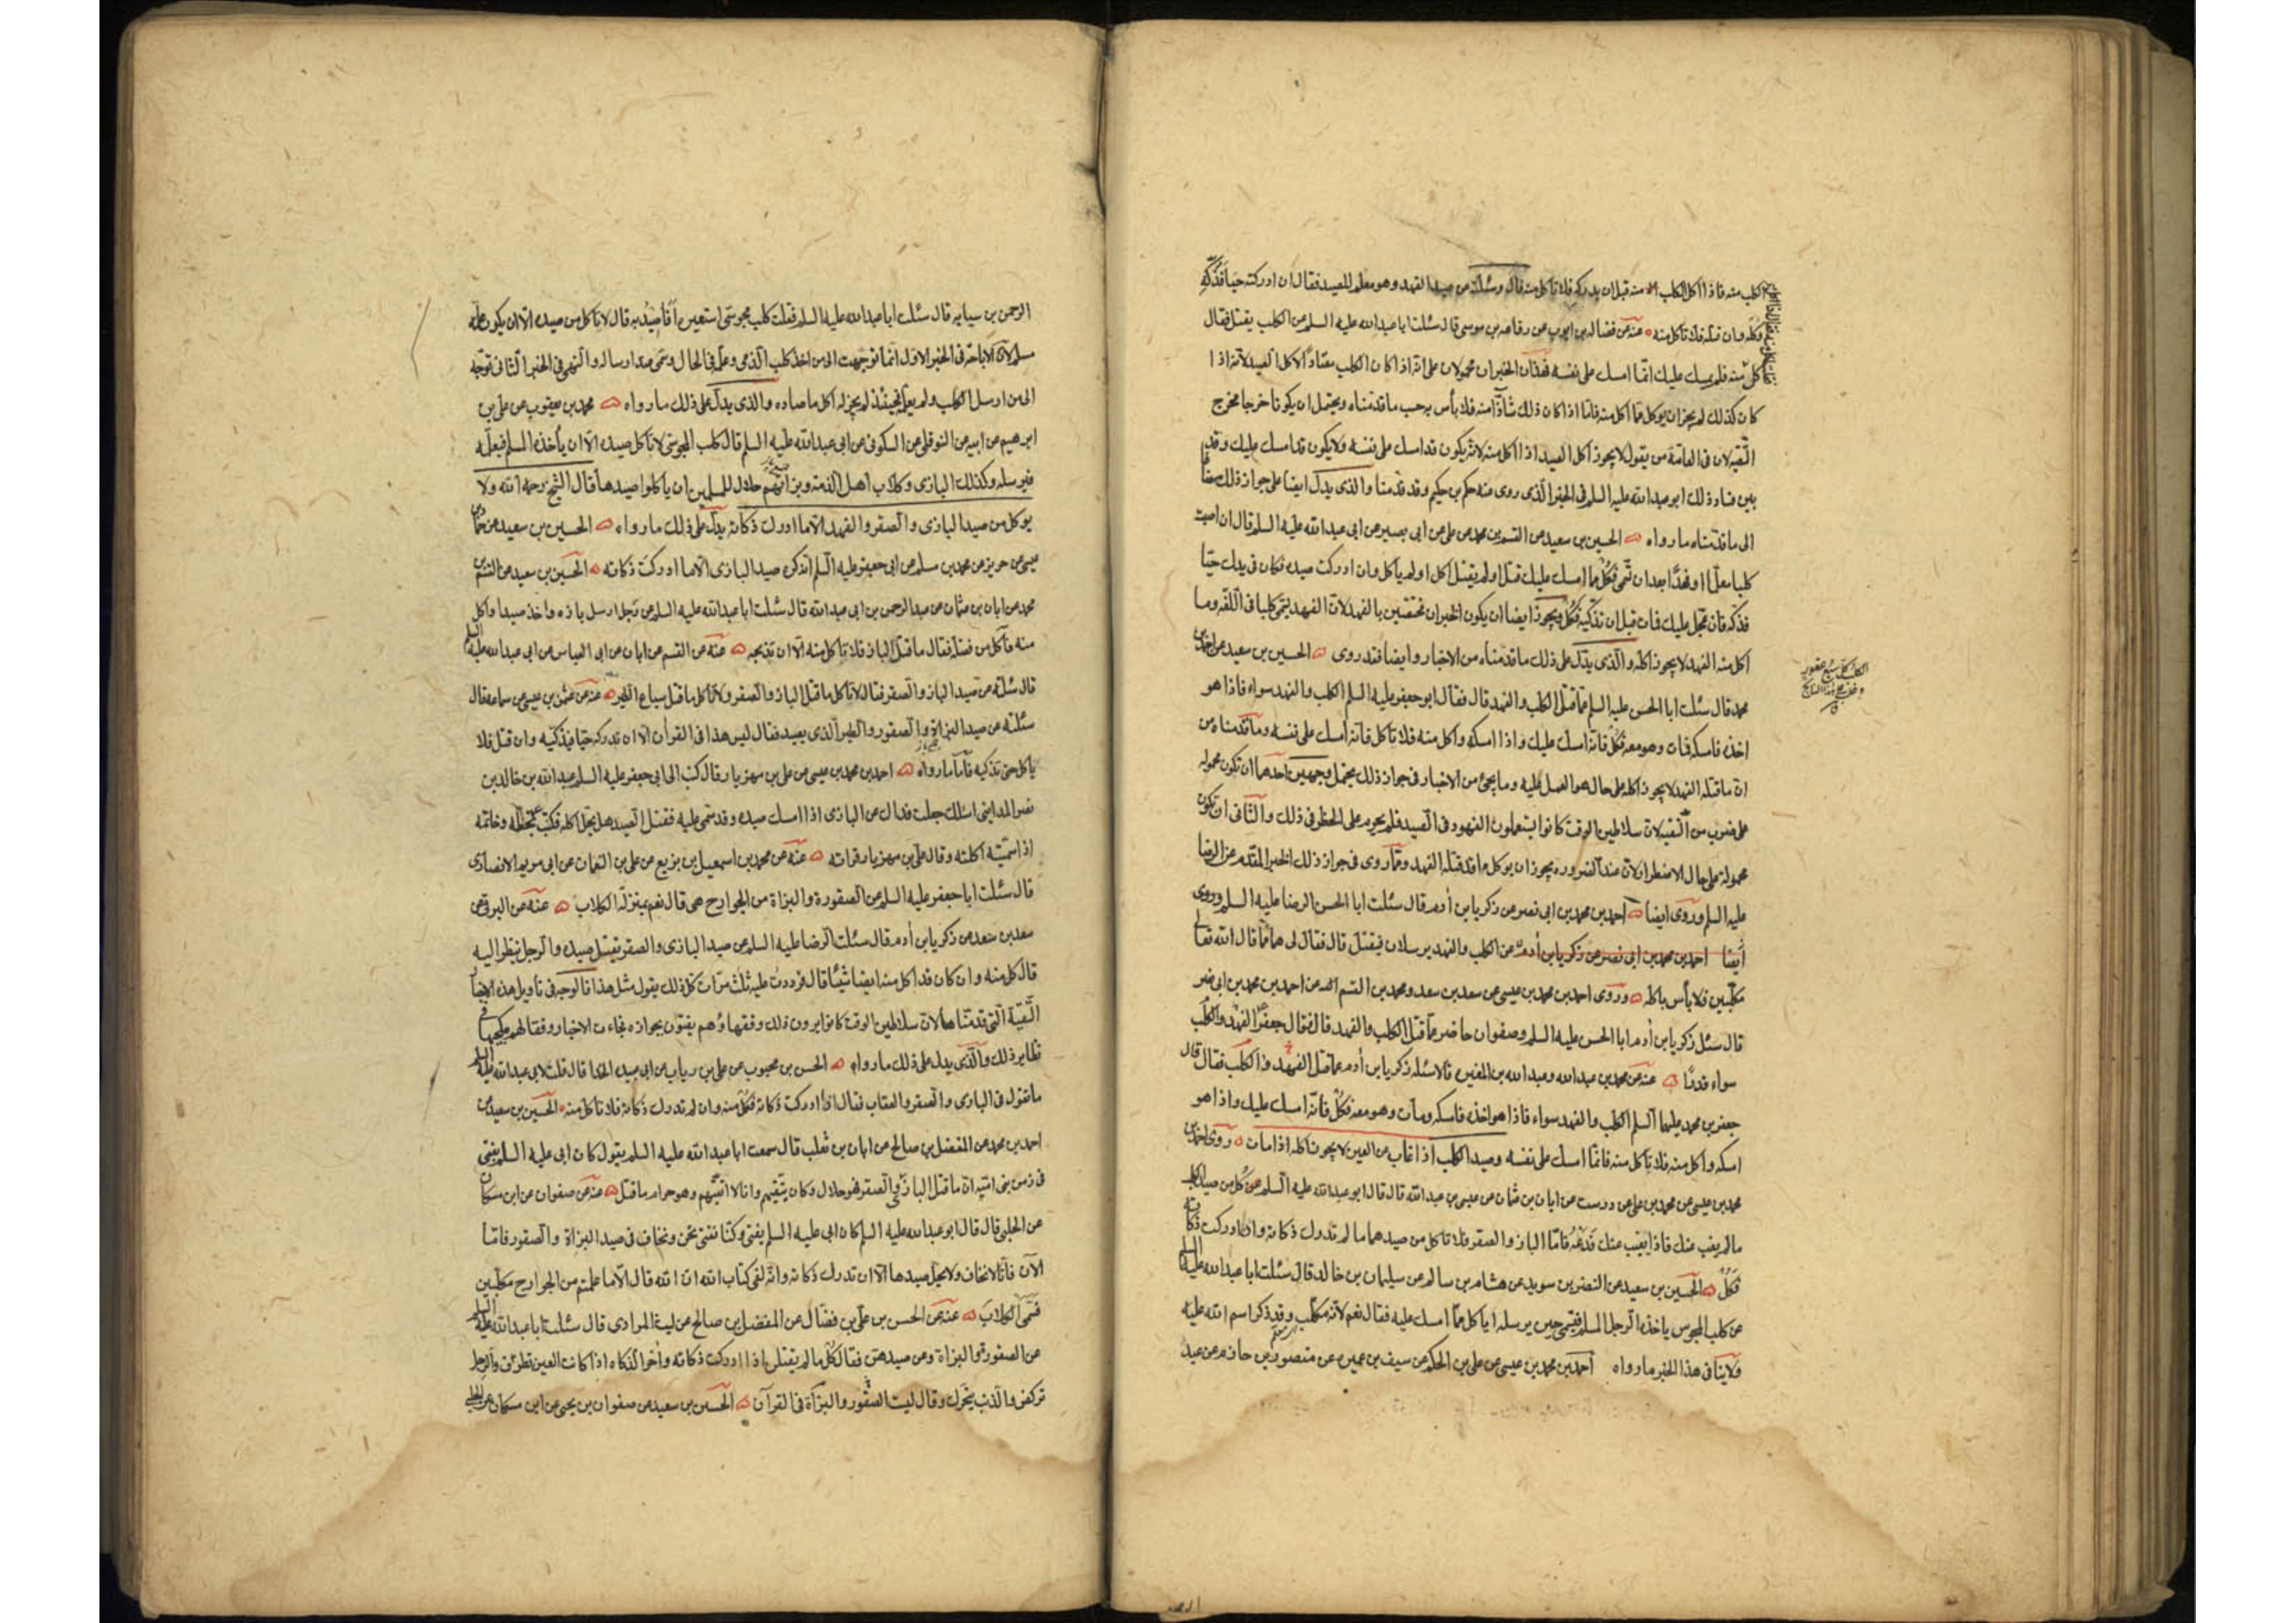 الكلب منه فاذا اكل الكلب منه قبل ان يدركه فلا تاكل منه قال وسئلته عن صيد الفهد وهو معلم للصيد فقال ان ادركته حيا فذكه
وكله وان قتله فلا تاكل منه عنه عن فضاله بن ايوب عن رفاعه بن موسى قال سئلت ابا عبد الله عليه السلم عن الكلب يقتل فقال
كل منه فلم يمسك عليك انما امسك على نفسه فهذان الخبران محمولان على انه اذا كان الكلب معتادا لاكل الصيد لانه اذا
كان كذلك لم يجز ان يوكل مما اكل منه فاما اذا كان ذلك شاذا منه فلا باس به حسب ما قدمناه ويحتمل ان يكونا خرجا مخرج
التقيه لان فى العامة من يقول لا يجوز اكل الصيد اذا اكل منه لانه يكون قد امسك على نفسه ولا يكون قد امسك عليك وقد
بين فساد ذلك ابو عبد الله عليه السلم فى الخبر الذى روى عنه حكم بن حكيم وقد قدمنا والذى يدل ايضا على جواز ذلك مضافا
الى ما قدمناه ما رواه الحسين بن سعيد عن القسم بن محمد عن على عن ابى بصير عن ابى عبد الله عليه السلم قال ان اصبت
كلبا معلما او فهدا بعد ان تسمى فكل مما امسك عليك قتل او لم يقتل اكل او لم ياكل وان ادركت صيده فكان فى يدك حيا
فذكه فان عجل عليك فمات قبل ان تذكيه فكل ويجوز ايضا ان يكون الخبران مختصين بالفهد لان الفهد يسمى كلبا فى اللغه وما
اكل منه الفهد لا يجوز اكله والذى يدل على ذلك ما قدمناه من الاخبار وايضا فقد روى الحسين بن سعيد عن احمد بن
محمد قال سئلت ابا الحسن عليه السلم عما قتل الكلب والفهد قال فقال ابو جعفر عليه السلم الكلب والفهد سواء فاذا هو
اخذه فامسكه فمات وهو معه فكل فانه امسك عليك واذا امسكه واكل منه فلا تاكل فانه امسك على نفسه وما قدمناه من
ان ما قتله الفهد لا يجوز اكله على حال هو العمل عليه وما يجئ من الاخبار فى جواز ذلك يحتمل وجهين احدهما ان تكون محموله
على ضرب من التقيه لان سلاطين الوقت كانوا يستعملون الفهود فى الصيد فلم يجر على الحظر فى ذلك والثانى ان تكون
محموله على حال الاضطرار لان عند الضروره يجوز ان يوكل ما قد قتله الفهد ومما روى فى جواز ذلك الخبر المتقدم عن الرضا
عليه السلم وروى ايضا احمد بن محمد بن ابى نصر عن زكريا بن ادم قال سئلت ابا الحسن الرضا عليه السلم وروى
ايضا احمد بن محمد بن ابى نصر عن زكريا بن ادم عن الكلب والفهد يرسلان فيقتل قال فقال لى هما مما قال الله تعالى
مكلبين فلا بأس باكله وروى احمد بن محمد بن عيسى عن سعد بن سعد ومحمد بن القسم عن احمد بن محمد بن ابى نصر
قال سئل زكريا بن ادم ابا الحسن عليه السلم وصفوان حاضر عما قتل الكلب والفهد قال فقال جعفر الفهد والكلب
سواء قدرا عنه عن محمد بن عبدالله وعبد الله بن المغيره قالا سئله زكريا بن ادم عما قتل الفهد والكلب فقال قال
جعفر بن محمد عليهما السلم الكلب والفهد سواء فاذا هو اخذه فامسكه ومات وهو معه فكل فانه امسك عليك واذا هو
امسكه واكل منه فلا تاكل منه فانما امسك على نفسه وصيد الكلب اذا غاب عن العين لا يجوز اكله اذا مات روى احمد بن
محمد بن عيسى عن محمد بن على عن درست عن ابان بن عثمان عن عيسى بن عبدالله قال قال ابو عبدالله عليه السلم كل من صيد الكلب
ما لم يغب عنك فاذا تغيب عنك فدعه فاما الباز والصقر فلا تاكل من صيدهما ما لم تدرك ذكاته واذا ادركت ذكاته
فكل الحسين بن سعيد عن النضر بن سويد عن هشام بن سالم عن سليمان بن خالد قال سئلت ابا عبدالله عليه السلم
عن كلب المجوس ياخذه الرجل المسلم فيسمى حين يرسله اياكل مما امسك عليه فقال نعم لانه مكلب وقد ذكر اسم الله عليه
ولا ينافى هذا الخبر ما رواه احمد بن محمد بن عيسى عن على بن الحكم عن سيف بن عميره عن منصور بن حازم عن عبد
الرحمن بن سيابه قال سئلت ابا عبدالله عليه السلم فقلت كلب مجوسى استعيره أفأصيد به قال لا تاكل من صيده الا ان يكون علمه
مسلم لان الاباحه فى الخبر الاول انما توجهت الى من اخذ كلب الذمى وعلمه فى الحال وسمى عند ارساله والنهى فى الخبر الثانى توجه
الى من ارسل الكلب ولم يعلمه فحينئذ لم يجز له اكل ما صاده والذى يدل على ذلك ما رواه محمد بن يعقوب عن على بن
ابرهيم عن ابيه عن النوفلى عن السكونى عن ابى عبدالله عليه السلم قال كلب المجوسى لا تاكل صيده الا ان يأخذه المسلم فيعلمه
فيرسله وكذلك البازى وكلاب اهل الذمه وبزاتهم حلال للمسلمين ان ياكلوا صيدها قال الشيخ رحمه الله ولا
يوكل من صيد البازى والصقر والفهد الا ما ادرك ذكاته يدل على ذلك ما رواه الحسين بن سعيد عن حماد بن
عيسى عن حريز عن محمد بن مسلم عن ابى جعفر عليه السلم انه كره صيد البازى الا ما ادركت ذكاته الحسين بن سعيد عن القسم بن
محمد عن ابان بن عثمان عن عبد الرحمن بن ابى عبدالله قال سئلت ابا عبدالله عليه السلم عن رجل ارسل بازه واخذ صيدا واكل
منه فآكل من فضله فقال ما قتل الباز فلا تاكل منه الا ان تذبحه عنه عن القسم عن ابان عن ابى العباس عن ابى عبدالله عليه السلم
قال سئلته عن صيد الباز والصقر فقال لا تاكل ما قتل الباز والصقر ولا تاكل ما قتل سباع الطير عنه عن عثمن بن عيسى عن سماعه قال
سئلته عن صيد البزاة والصقور والطير الذى يصيد فقال ليس هذا فى القرآن الا ان تدركه حيا فتذكيه وان قتل فلا
ياكل حتى تذكيه فاما ما رواه احمد بن محمد بن عيسى عن على بن مهزيار قال كتب الى ابى جعفر عليه السلم عبدالله بن خالد بن
نصر المداينى اسئلك جعلت فداك عن البازى اذا امسك صيده وقد سمى عليه فقتل الصيد هل يحل اكله فكتب بخطه وخاتمه
اذا سميته اكلته وقال على بن مهزيار قراته عنه عن محمد بن اسمعيل بن بزيع عن على بن النعمان عن ابى مريم الانصارى
قال سئلت ابا جعفر عليه السلم عن الصقورة والبزاة من الجوارح هى قال نعم بمنزلة الكلاب عنه عن البرقى عن
سعد بن سعد عن زكريا بن ادم قال سئلت الرضا عليه السلم عن صيد البازى والصقر يقتل صيده والرجل ينظر اليه
قال كل منه وان كان قد اكل منه ايضا شيئا قال فرددت عليه ثلث مرات كل ذلك يقول مثل هذا فالوجه فى تأويل هذه الاخبار
التقية التى قدمناها لان سلاطين الوقت كانوا يرون ذلك وفقهاؤهم يفتون بجوازه فجاءت الاخبار وفقا لهم كما جاءت فى
نظاير ذلك والذى يدل على ذلك ما رواه الحسن بن محبوب عن على بن رياب عن ابى عبيده الحذا قال قلت لابى عبدالله عليه السلم
ما تقول فى البازى والصقر والعقاب فقال اذا ادركت ذكاته فكل منه وان لم تدرك ذكاته فلا تاكل منه الحسين بن سعيد عن
احمد بن محمد عن المفضل بن صالح عن ابان بن تغلب قال سمعت ابا عبدالله عليه السلم يقول كان ابى عليه السلم يفتى
فى زمن بنى اميه ان ما قتل الباز والصقر فهو حلال وكان يتقيهم وانا لا اتقيهم وهو حرام ما قتل عنه عن صفوان عن ابن مسكان
عن الحلبى قال قال ابو عبدالله عليه السلم كان ابى عليه السلم يفتى وكنا نفتى نحن ونخاف فى صيد البزاة والصقور فاما
الآن فانا لا نخاف ولا يحل صيدها الا ان تدرك ذكاته وانه لفى كتاب الله ان الله قال الا ما علمتم من الجوارح مكلبين
فسمى الكلاب عنه عن الحسن بن على بن فضال عن المفضل بن صالح عن ليث المرادى قال سئلت ابا عبدالله عليه السلم
عن الصقورة والبزاة وعن صيدهن فقال كل ما لم يقتلن اذا ادركت ذكاته وآخر الذكاه اذا كانت العين تطرف والرجل
تركض والذنب يتحرك وقال ليست الصقور والبزاة فى القرآن الحسين بن سعيد عن صفوان بن يحيى عن ابن مسكان عن الحلبى